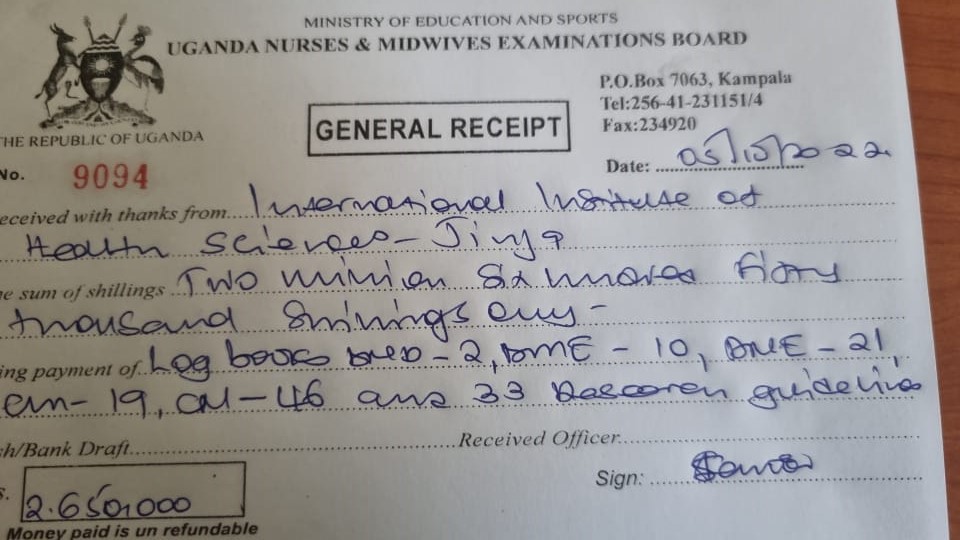 MINISTRY OF EDUCATION AND SPORTS
UGANDA NURSES & MIDWIVES EXAMINATIONS BOARD
P.O.Box 7063, Kampala
Tel:256-41-231151/4
Fax:234920
THE REPUBLIC OF UGANDA
GENERAL RECEIPT
No. 9094
Date: 05/10/2022
eceived with thanks from International Institute of
Health Sciences - Jinja
e sum of shillings Two million Six hundred fifty
thousand Shillings only -
ing payment of Log books - 2, DME - 10, DNE - 21,
19, CM - 46 and 33 Research guideline
h/Bank Draft Received Officer
Sign:
s. 2.650,000
Money paid is un refundable